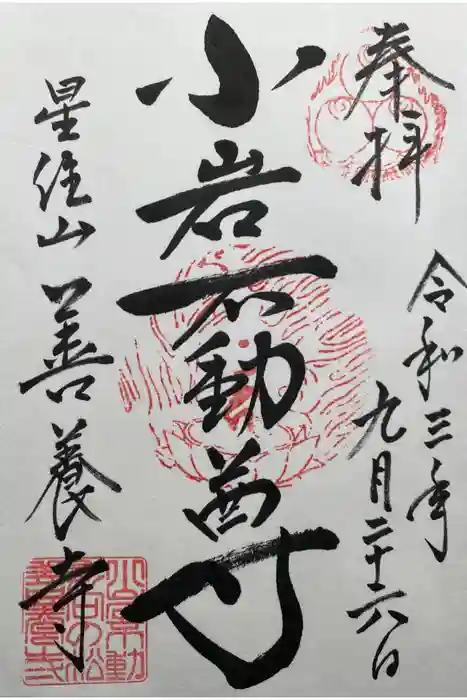 奉拝
令和三年
九月二十六日
小岩不動尊
星住山
善養寺